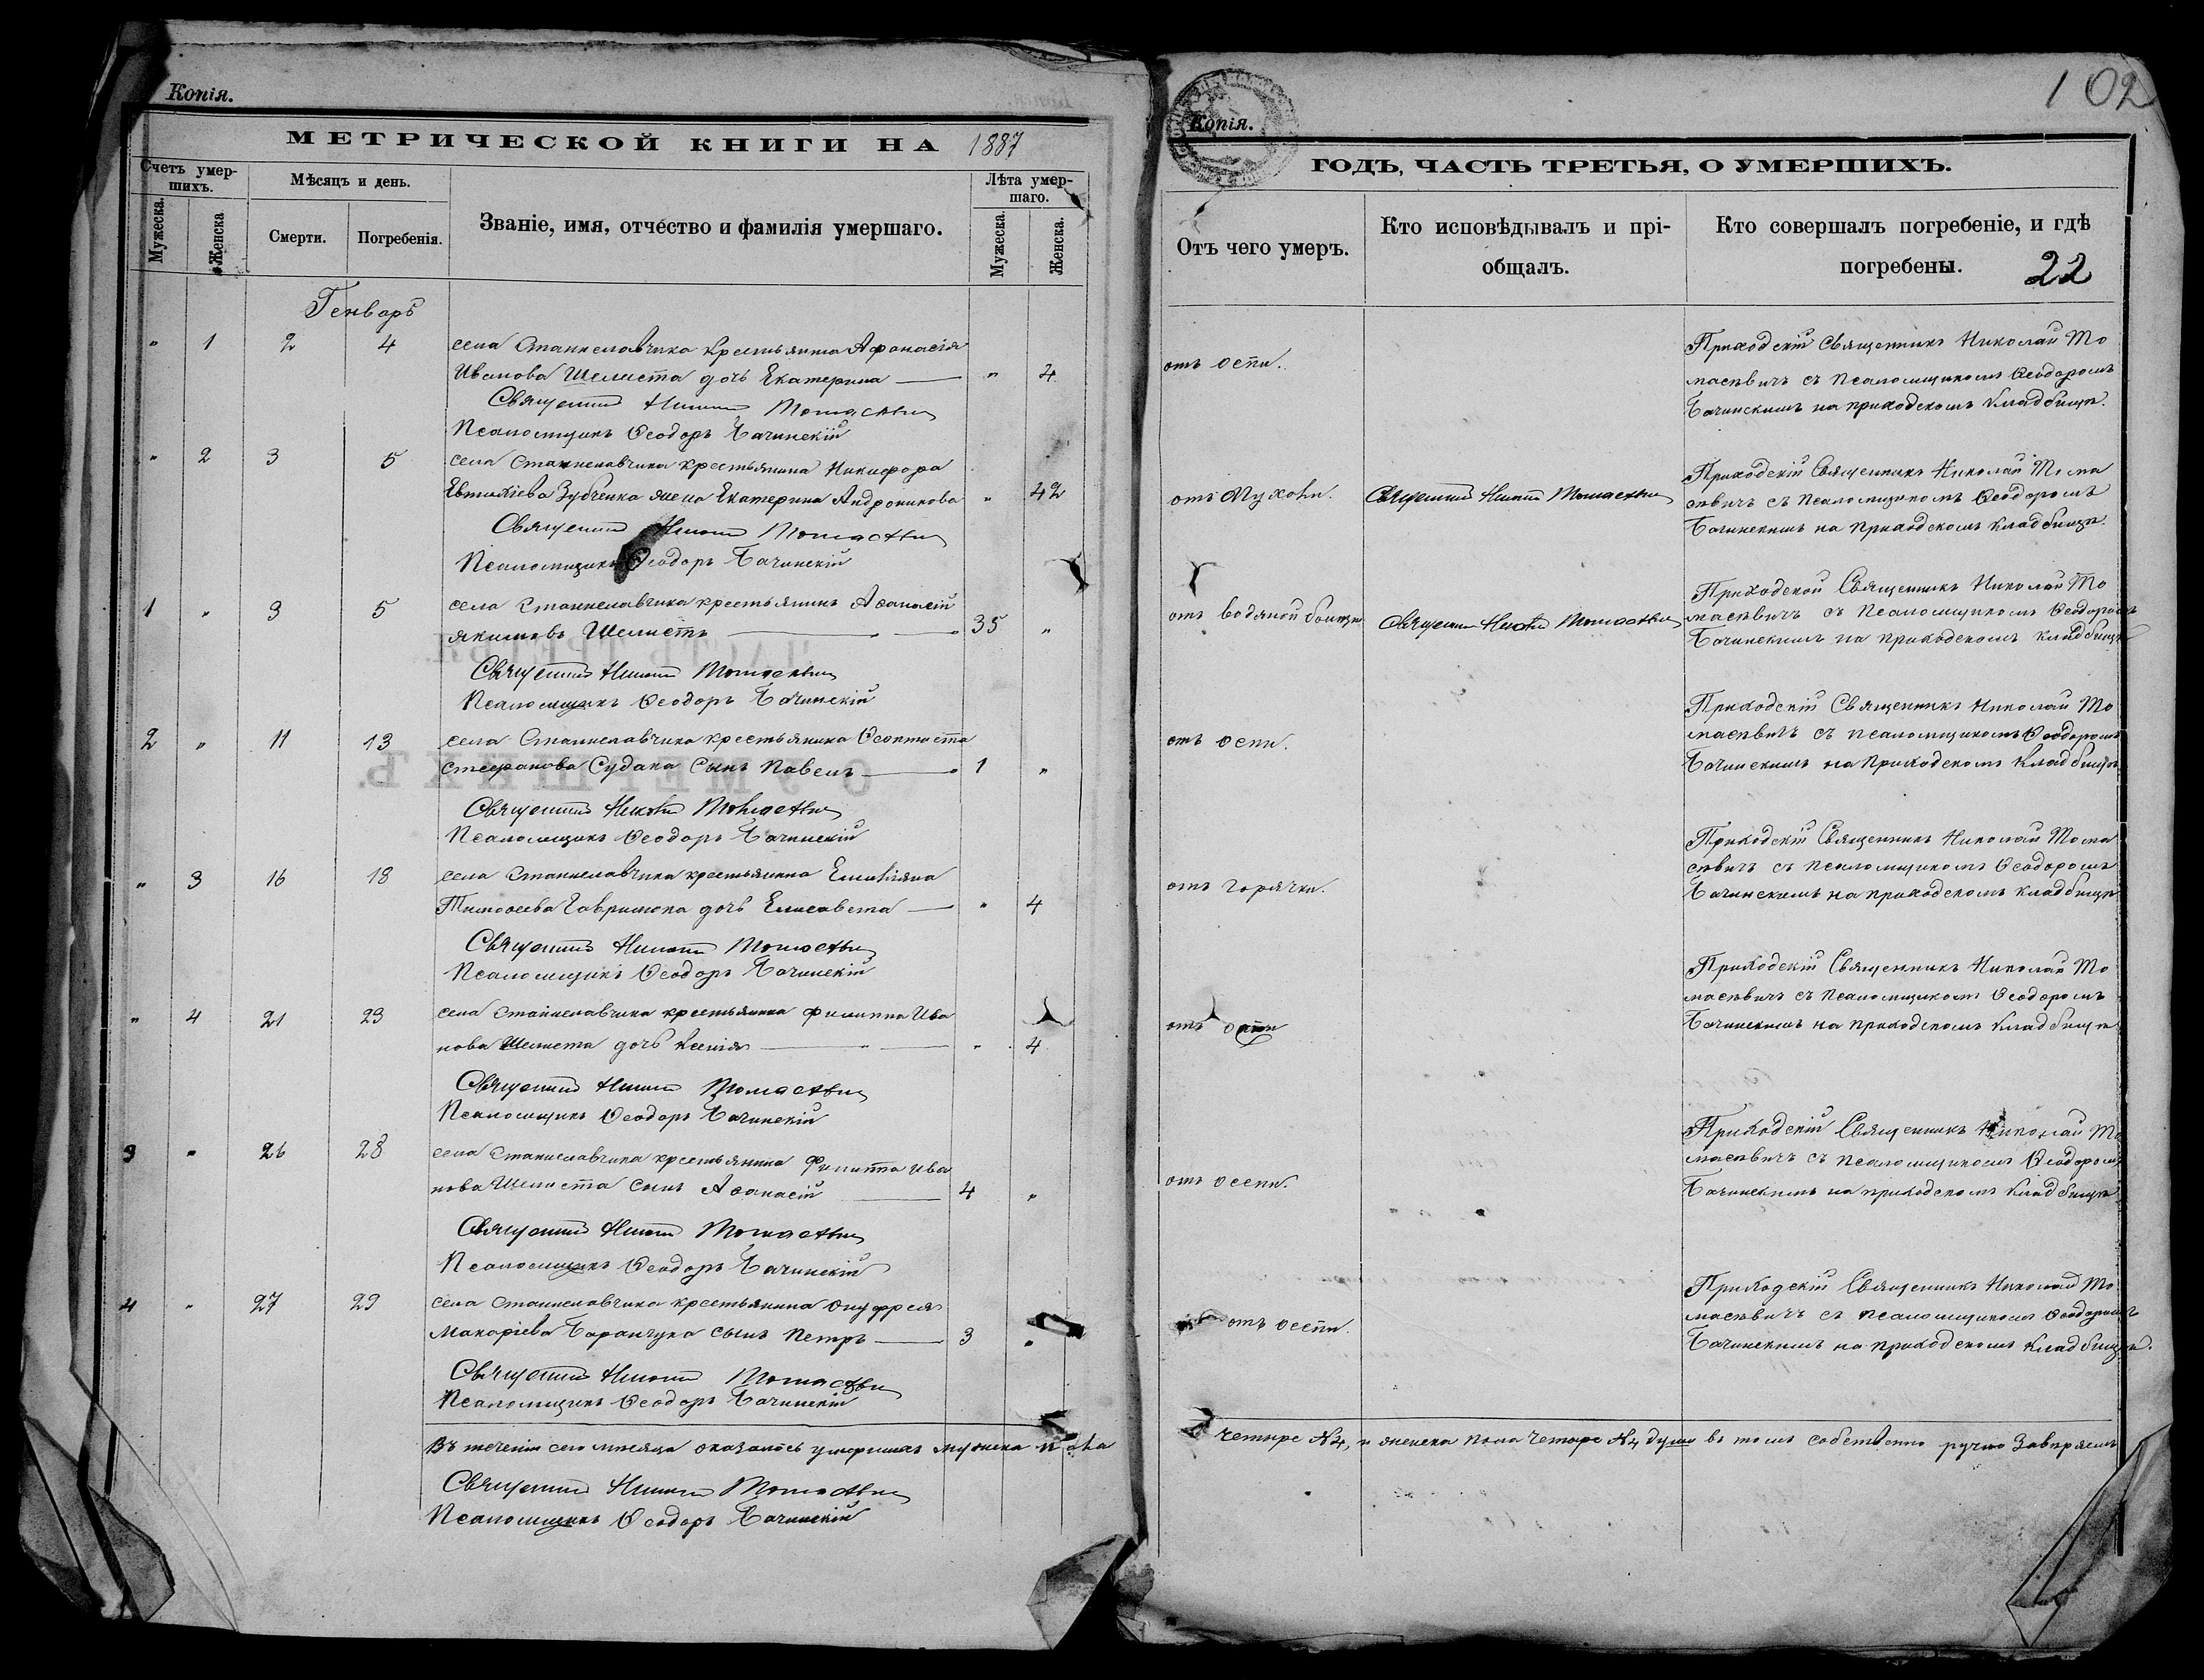 Копія.
МЕТРИЧЕСКОЙ КНИГИ НА 1887
Счетъ умер-
шихъ.
Мужеска.
Женска
Мѣсяцъ и день.
Смерти.
Погребенія.
Званіе, имя, отчество и фамилія умершаго.
Лѣта умер-
шаго.
Мужеска.
Женска.
Генваръ
" 1 2 4 села Станиславчика крестьянина Афанасія
Иванова Шелиста дочь Екатерина " 4
Священникъ Николай Томасевич
Псаломщикъ Ѳеодоръ Бачинскій
" 2 3 5 села Станиславчика крестьянина Никифора
Евтихіева Зубченка жена Екатерина Андроникова " 42
Священникъ Николай Томасевич
Псаломщикъ Ѳеодоръ Бачинскій
1 " 3 5 села Станиславчика крестьянинъ Аѳанасій
Якимовъ Шелистъ 35 "
Священникъ Николай Томасевич
Псаломщикъ Ѳеодоръ Бачинскій
2 " 11 13 села Станиславчика крестьянина Ѳеоктиста
Стефанова Судака сынъ Павелъ 1 "
Священникъ Николай Томасевич
Псаломщикъ Ѳеодоръ Бачинскій
" 3 16 18 села Станиславчика крестьянина Емиліяна
Тимоѳеева Гаврилюка дочь Елисавета " 4
Священникъ Николай Томасевич
Псаломщикъ Ѳеодоръ Бачинскій
" 4 21 23 села Станиславчика крестьянина Филиппа Ива
нова Шелиста дочь Ксенія " 4
Священникъ Николай Томасевич
Псаломщикъ Ѳеодоръ Бачинскій
3 " 26 28 села Станиславчика крестьянина Филиппа Ива
нова Шелиста сынъ Аѳанасій 4 "
Священникъ Николай Томасевич
Псаломщикъ Ѳеодоръ Бачинскій
4 " 27 29 села Станиславчика крестьянина Онуфрея
Макаріева Баранчука сынъ Петръ 3 "
Священникъ Николай Томасевич
Псаломщикъ Ѳеодоръ Бачинскій
Въ теченіи сего мѣсяца оказалось умершихъ мужска пола
Священникъ Николай Томасевич
Псаломщикъ Ѳеодоръ Бачинскій
102
Копія.
ГОДЪ, ЧАСТЬ ТРЕТЬЯ, О УМЕРШИХЪ.
Отъ чего умеръ.
Кто исповѣдывалъ и прі-
общалъ.
Кто совершалъ погребеніе, и гдѣ
погребены.
22
отъ оспи.
Приходскій Священникъ Николай То
масѣвичъ съ Псаломщикомъ Ѳеодоромъ
Бачинскимъ на приходскомъ кладбищѣ.
отъ Священникъ Николай Томасевич
Приходскій Священникъ Николай Тома
сѣвичъ съ Псаломщикомъ Ѳеодоромъ
Бачинскимъ на приходскомъ кладбищѣ.
отъ водяной Священникъ Николай Томасевич
Приходской Священникъ Николай То
масѣвичъ съ Псаломщикомъ Ѳеодоромъ
Бачинскимъ на приходскомъ кладбищѣ
отъ оспи.
Приходскій Священникъ Николай То
масѣвичъ съ псаломщикомъ Ѳеодоромъ
Бачинскимъ на приходскомъ кладбищѣ
отъ горячки.
Приходскій Священникъ Николай Тома
сѣвичъ съ псаломщикомъ Ѳеодоромъ
Бачинскимъ на приходскомъ кладбищѣ
отъ оспи
Приходскій Священникъ Николай То
масѣвичъ съ Псаломщикомъ Ѳеодоромъ
Бачинскимъ на приходскомъ кладбищѣ
отъ осспи.
Приходскій Священникъ Николай То
масѣвичъ съ псаломщикомъ Ѳеодоромъ
Бачинскимъ на приходскомъ кладбищѣ
отъ осспи.
Приходскій Священникъ Николай То
масѣвичъ съ псаломщикомъ Ѳеодоромъ
Бачинскимъ на приходскомъ кладбищѣ.
четыре №4, и женска пола четыре №4 душ въ томъ собственно ручно завѣряемъ